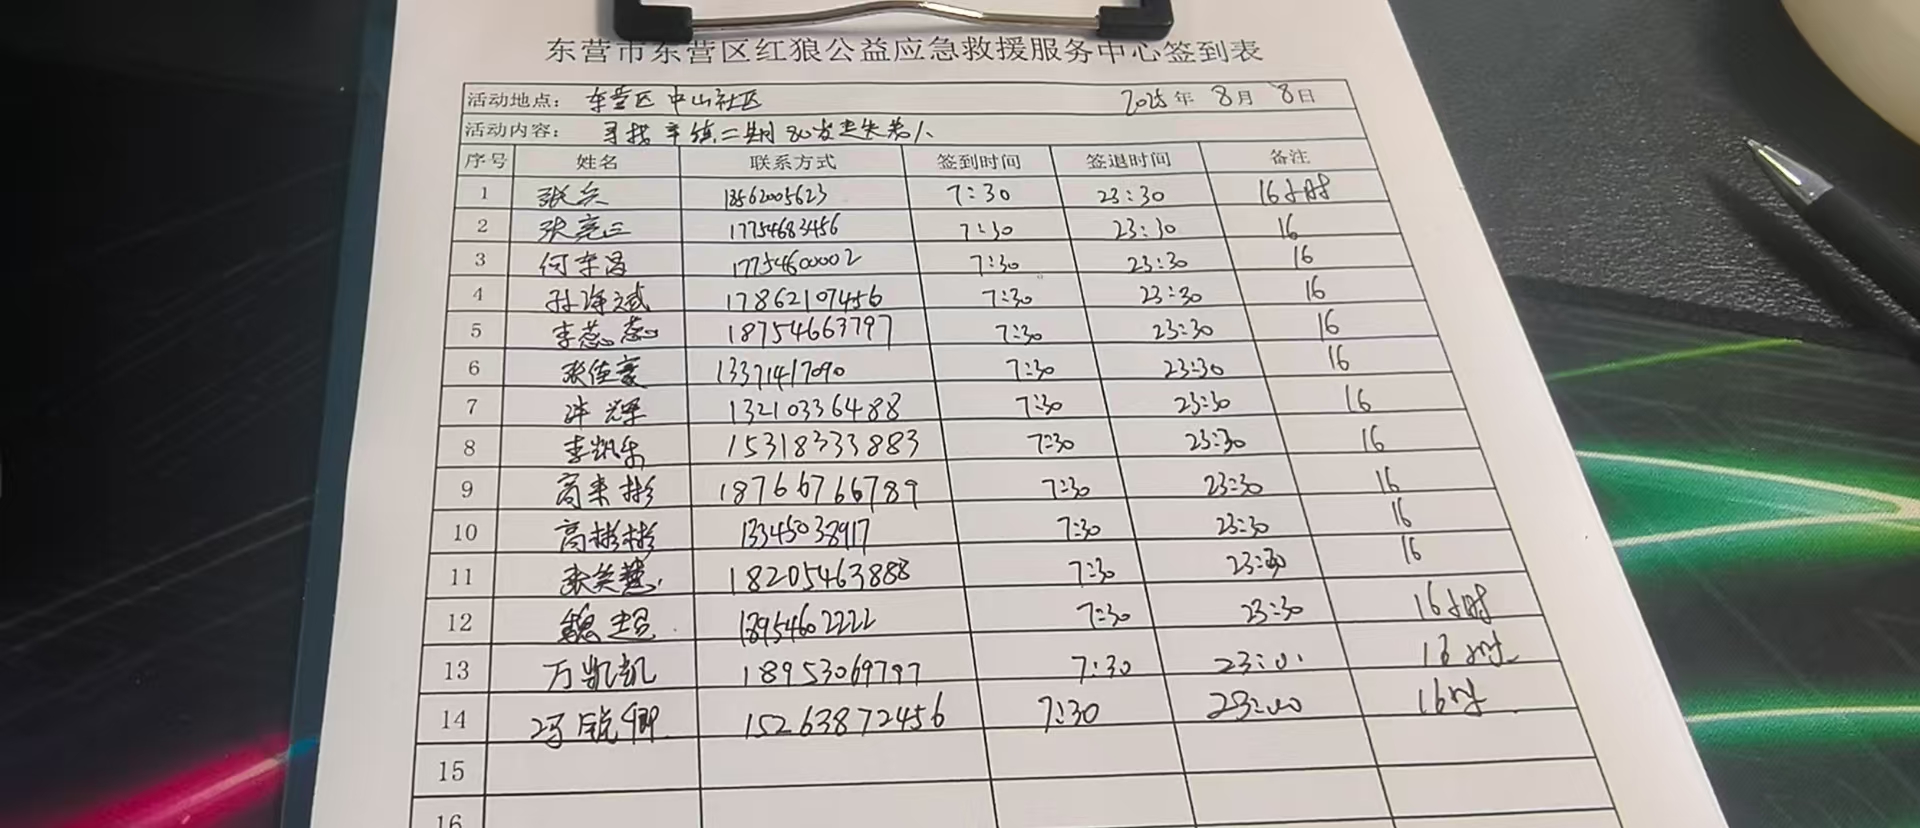 东营市东营区红狼公益应急救援服务中心签到表
活动地点： 东营区中山社区 2025年 8月 8日
活动内容： 寻找辛镇二期80岁走失老人
序号 姓名 联系方式 签到时间 签退时间 备注
1 张兵 13562005623 7:30 23:30 16小时
2 张亮三 17754683456 7:30 23:30 16
3 何东昌 17754600002 7:30 23:30 16
4 孙海斌 17862107456 7:30 23:30 16
5 李蕊蕊 18754663797 7:30 23:30 16
6 张佳豪 13371417090 7:30 23:30 16
7 辉 13210336488 7:30 23:30 16
8 李凯乐 15318333883 7:30 23:30 16
9 高来彬 18766766789 7:30 23:30 16
10 高彬彬 13345038917 7:30 23:30 16
11 张美慧 18205463888 7:30 23:30 16
12 魏超 18954602222 7:30 23:30 16小时
13 万凯凯 18953069797 7:30 23:00 16小时
14 冯锐卿 15263872456 7:30 23:00 16时
15
16